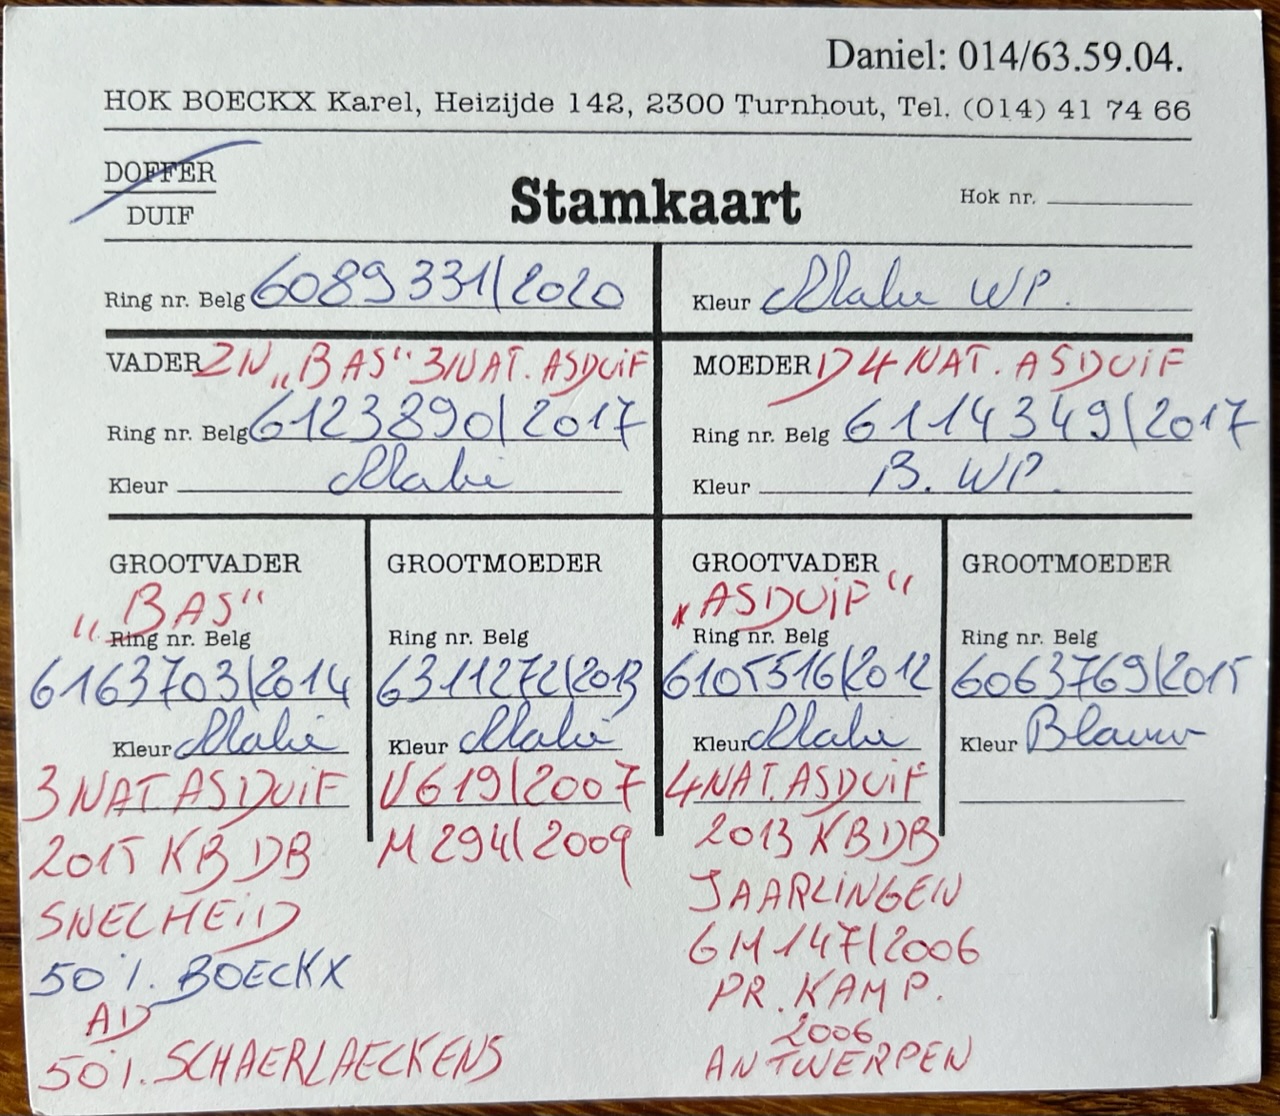 Daniel: 014/63.59.04.
HOK BOECKX Karel, Heizijde 142, 2300 Turnhout, Tel. (014) 41 74 66
DOFFER
DUIF
Stamkaart
Hok nr.
Ring nr. Belg 6089331/2020
Kleur WP.
VADER ZN „BAS" 3NAT. ASDUIF
Ring nr. Belg 6123890/2017
Kleur
MOEDER D 4 NAT. ASDUIF
Ring nr. Belg 6114349/2017
Kleur B. WP.
GROOTVADER
„BAS"
Ring nr. Belg
6163703/2014
Kleur
3 NAT. ASDUIF
2015 KBDB
SNELHEID
50%. BOECKX
AD
50%. SCHAERLAECKENS
GROOTMOEDER
Ring nr. Belg
6311272/2013
Kleur
V619/2007
M 294/2009
GROOTVADER
„ASDUIF"
Ring nr. Belg
6105516/2012
Kleur
4NAT. ASDUIF
2013 KBDB
JAARLINGEN
GM147/2006
PR. KAMP.
2006
ANTWERPEN
GROOTMOEDER
Ring nr. Belg
6063769/2015
Kleur Blauw